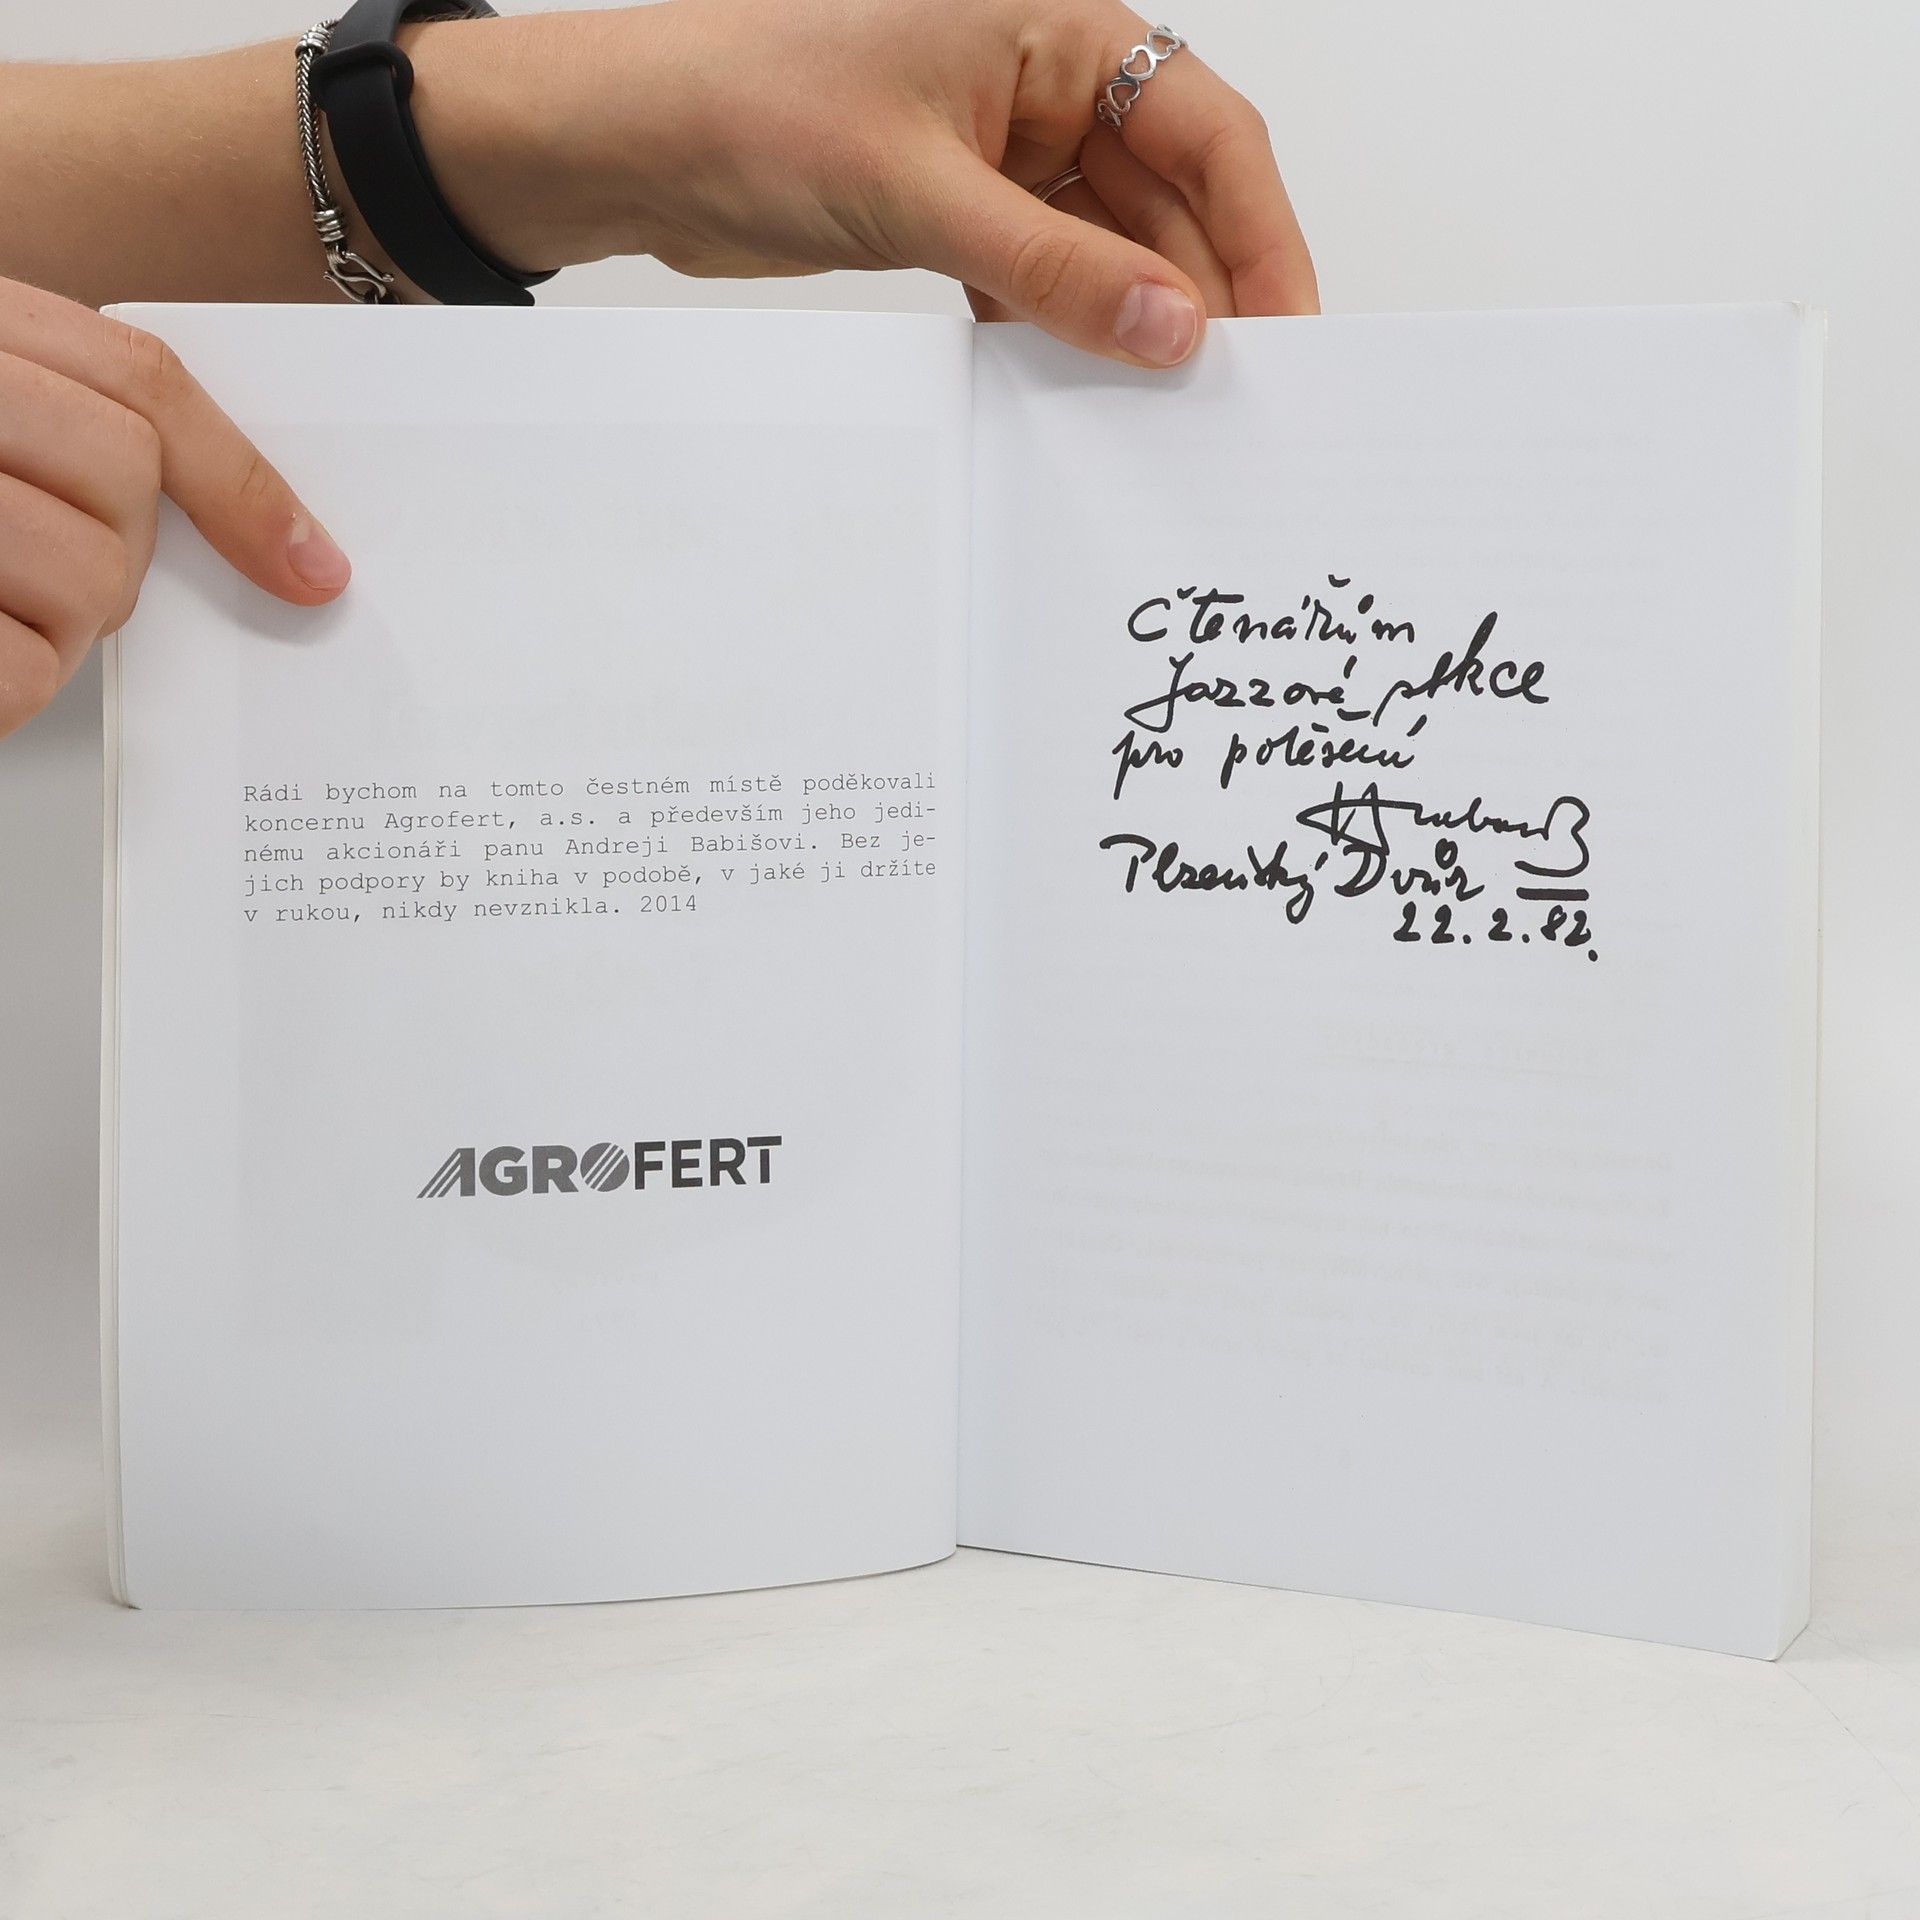 Rádi bychom na tomto čestném místě poděkovali
koncernu Agrofert, a.s. a především jeho jedi-
nému akcionáři panu Andreji Babišovi. Bez je-
jich podpory by kniha v podobě, v jaké ji držíte
v rukou, nikdy nevznikla. 2014
AGROFERT
Čtenářům
Jazzové sekce
pro potěšení
Plzeňský Dvůr
22. 2. 82.